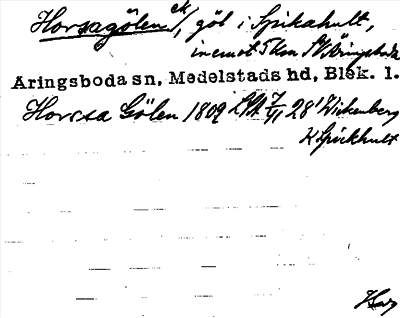 Horsagölen ek/, göl i Spikahult,
inemot 5 km SV Åringsboda
Aringsboda sn, Medelstads hd, Blek. l.
Horssa Gölen 1809 LSA 7/VI 28' Wickenberg
K Spickhult